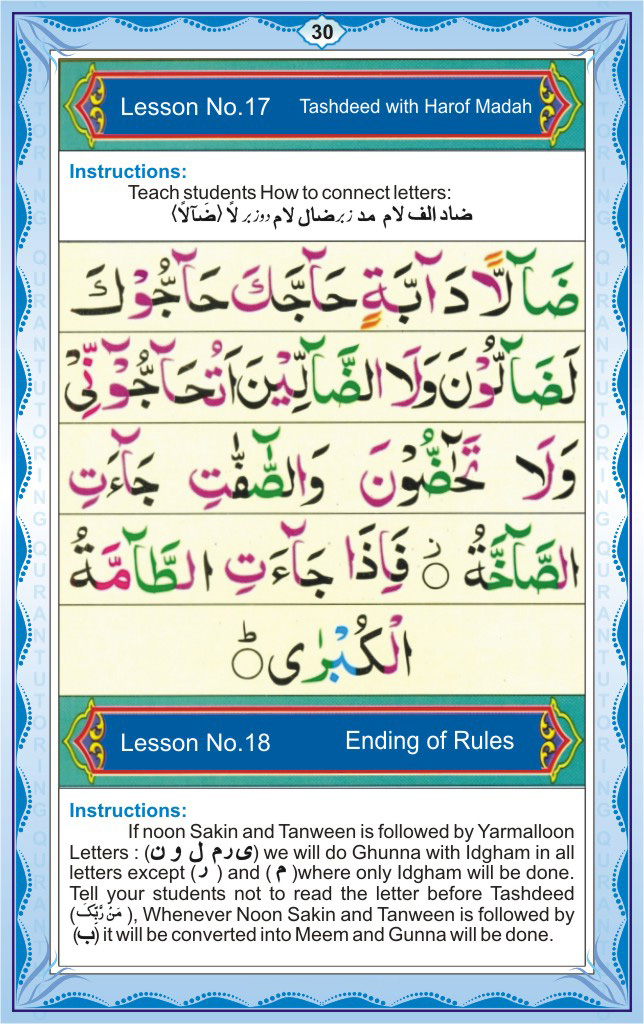 30
Lesson No.17 Tashdeed with Harof Madah
Instructions:
Teach students How to connect letters:
ضاد الف لام مد زبر ضال لام دو زبر لاً (ضَآلاًّ)
ضَآلًّا دَآبَّةٍ حَآجَّكَ حَآجُّوْكَ
لَضَآلُّوْنَ وَلَا الضَّآلِّيْنَ اَتُحَآجُّوْٓنِّىْ
وَلَا تَحٰٓضُّوْنَ وَالصّٰٓفّٰتِ جَآءَتِ
الصَّآخَّةُ فَاِذَا جَآءَتِ الطَّآمَّةُ
الْكُبْرٰى ط
Lesson No.18 Ending of Rules
Instructions:
If noon Sakin and Tanween is followed by Yarmalloon
Letters : (ى ر م ل و ن) we will do Ghunna with Idgham in all
letters except (ر) and (م) where only Idgham will be done.
Tell your students not to read the letter before Tashdeed
(مَنْ رَّبُّكَ), Whenever Noon Sakin and Tanween is followed by
(ب) it will be converted into Meem and Gunna will be done.
QURAN TUTORING QURAN TUTORING